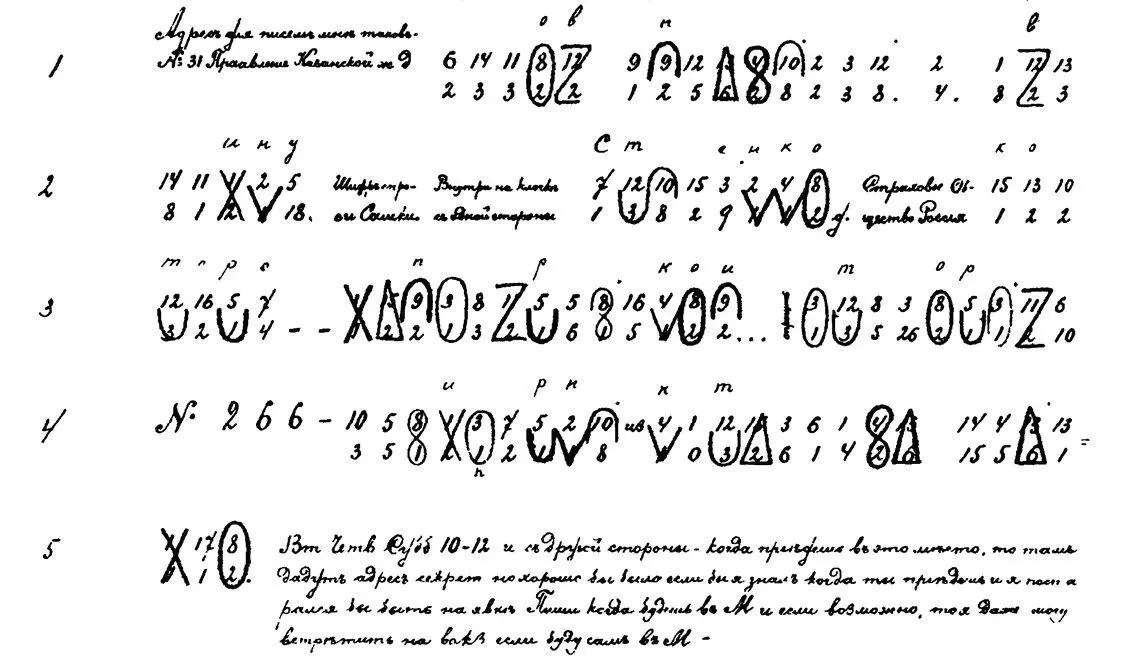 о в н в
Адресъ для писемъ мнѣ таковъ.
1 № 31 Правление Казанской ж д 6 14 11 8 12 9 9 12 13 4 10 2 3 12 2 1 12 13
2 3 3 2 2 1 2 5 6 2 8 2 3 8. 4. 8 2 3
и н у С т е и к о к о
2 14 11 1 2 5 Внутри на клочкѣ 7 12 10 15 3 2 4 8 Страховое Об- 15 13 10
8 1 2 1 18. съ одной стороны 1 3 8 2 9 1 1 2 щество Россия 1 2 2
т р с п р к о и т о р
3 12 16 5 7 5 9 3 8 11 5 5 8 16 4 8 9 3 12 8 3 8 5 3 11 6
3 2 1 4 - - 2 2 1 3 2 1 6 1 5 1 2 2 ... 1 3 5 26 2 1 1 2 10
и р н к т
4 № 2 6 6 - 10 5 8 1 3 7 5 2 10 из 4 1 12 3 6 1 4 13 14 4 13 13
3 5 1 2 1 2 1 1 8 1 0 3 2 6 1 4 2 6 15 5 6 1 =
п
5 17 8 Вт Четв Субб 10-12 и съ другой стороны - когда приѣдешь въ это мѣсто, то тамъ
1 2. дадутъ адресъ секрет но хорошо бы было если бы я зналъ когда ты приѣдешь и я пост а
рался бы быть на явкѣ Пиши когда будешь въ М и если возможно, то я даже могу
встрѣтить на вокз если буду самъ въ М -